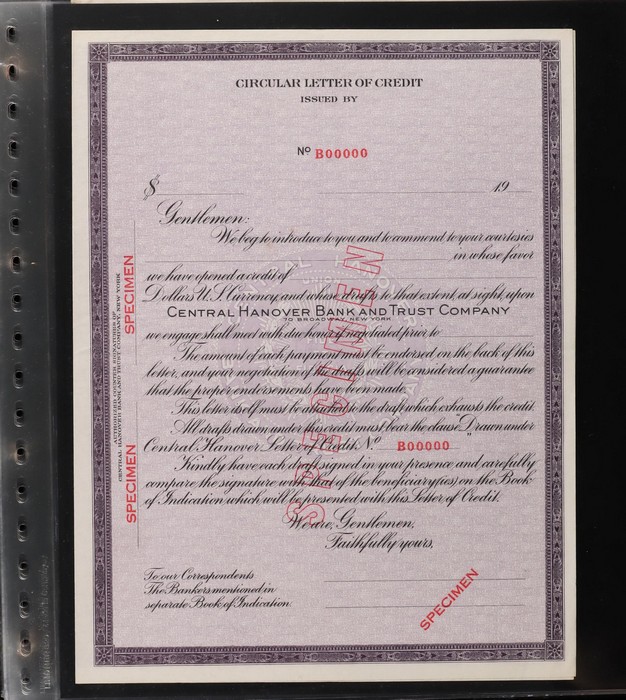 CIRCULAR LETTER OF CREDIT
ISSUED BY
No B00000
$ 19
Gentlemen:
We beg to introduce to you and to commend to your courtesies
in whose favor
we have opened a credit of
Dollars U.S. Currency, and whose drafts to that extent, at sight, upon
CENTRAL HANOVER BANK AND TRUST COMPANY
70 BROADWAY, NEW YORK
we engage shall meet with due honor if negotiated prior to
The amount of each payment must be endorsed on the back of this
letter, and your negotiation of the drafts will be considered a guarantee
that the proper endorsements have been made.
This letter itself must be attached to the draft which exhausts the credit.
All drafts drawn under this credit must bear the clause "Drawn under
Central Hanover Letter of Credit No B00000 "
Kindly have each draft signed in your presence and carefully
compare the signature with that of the beneficiary(ies) on the Book
of Indication which will be presented with this Letter of Credit.
We are, Gentlemen,
Faithfully yours,
To our Correspondents
The Bankers mentioned in
separate Book of Indication.
SPECIMEN
SPECIMEN
SPECIMEN
SPECIMEN
AUTHORIZED COUNTER SIGNATURES OF
CENTRAL HANOVER BANK AND TRUST COMPANY, NEW YORK